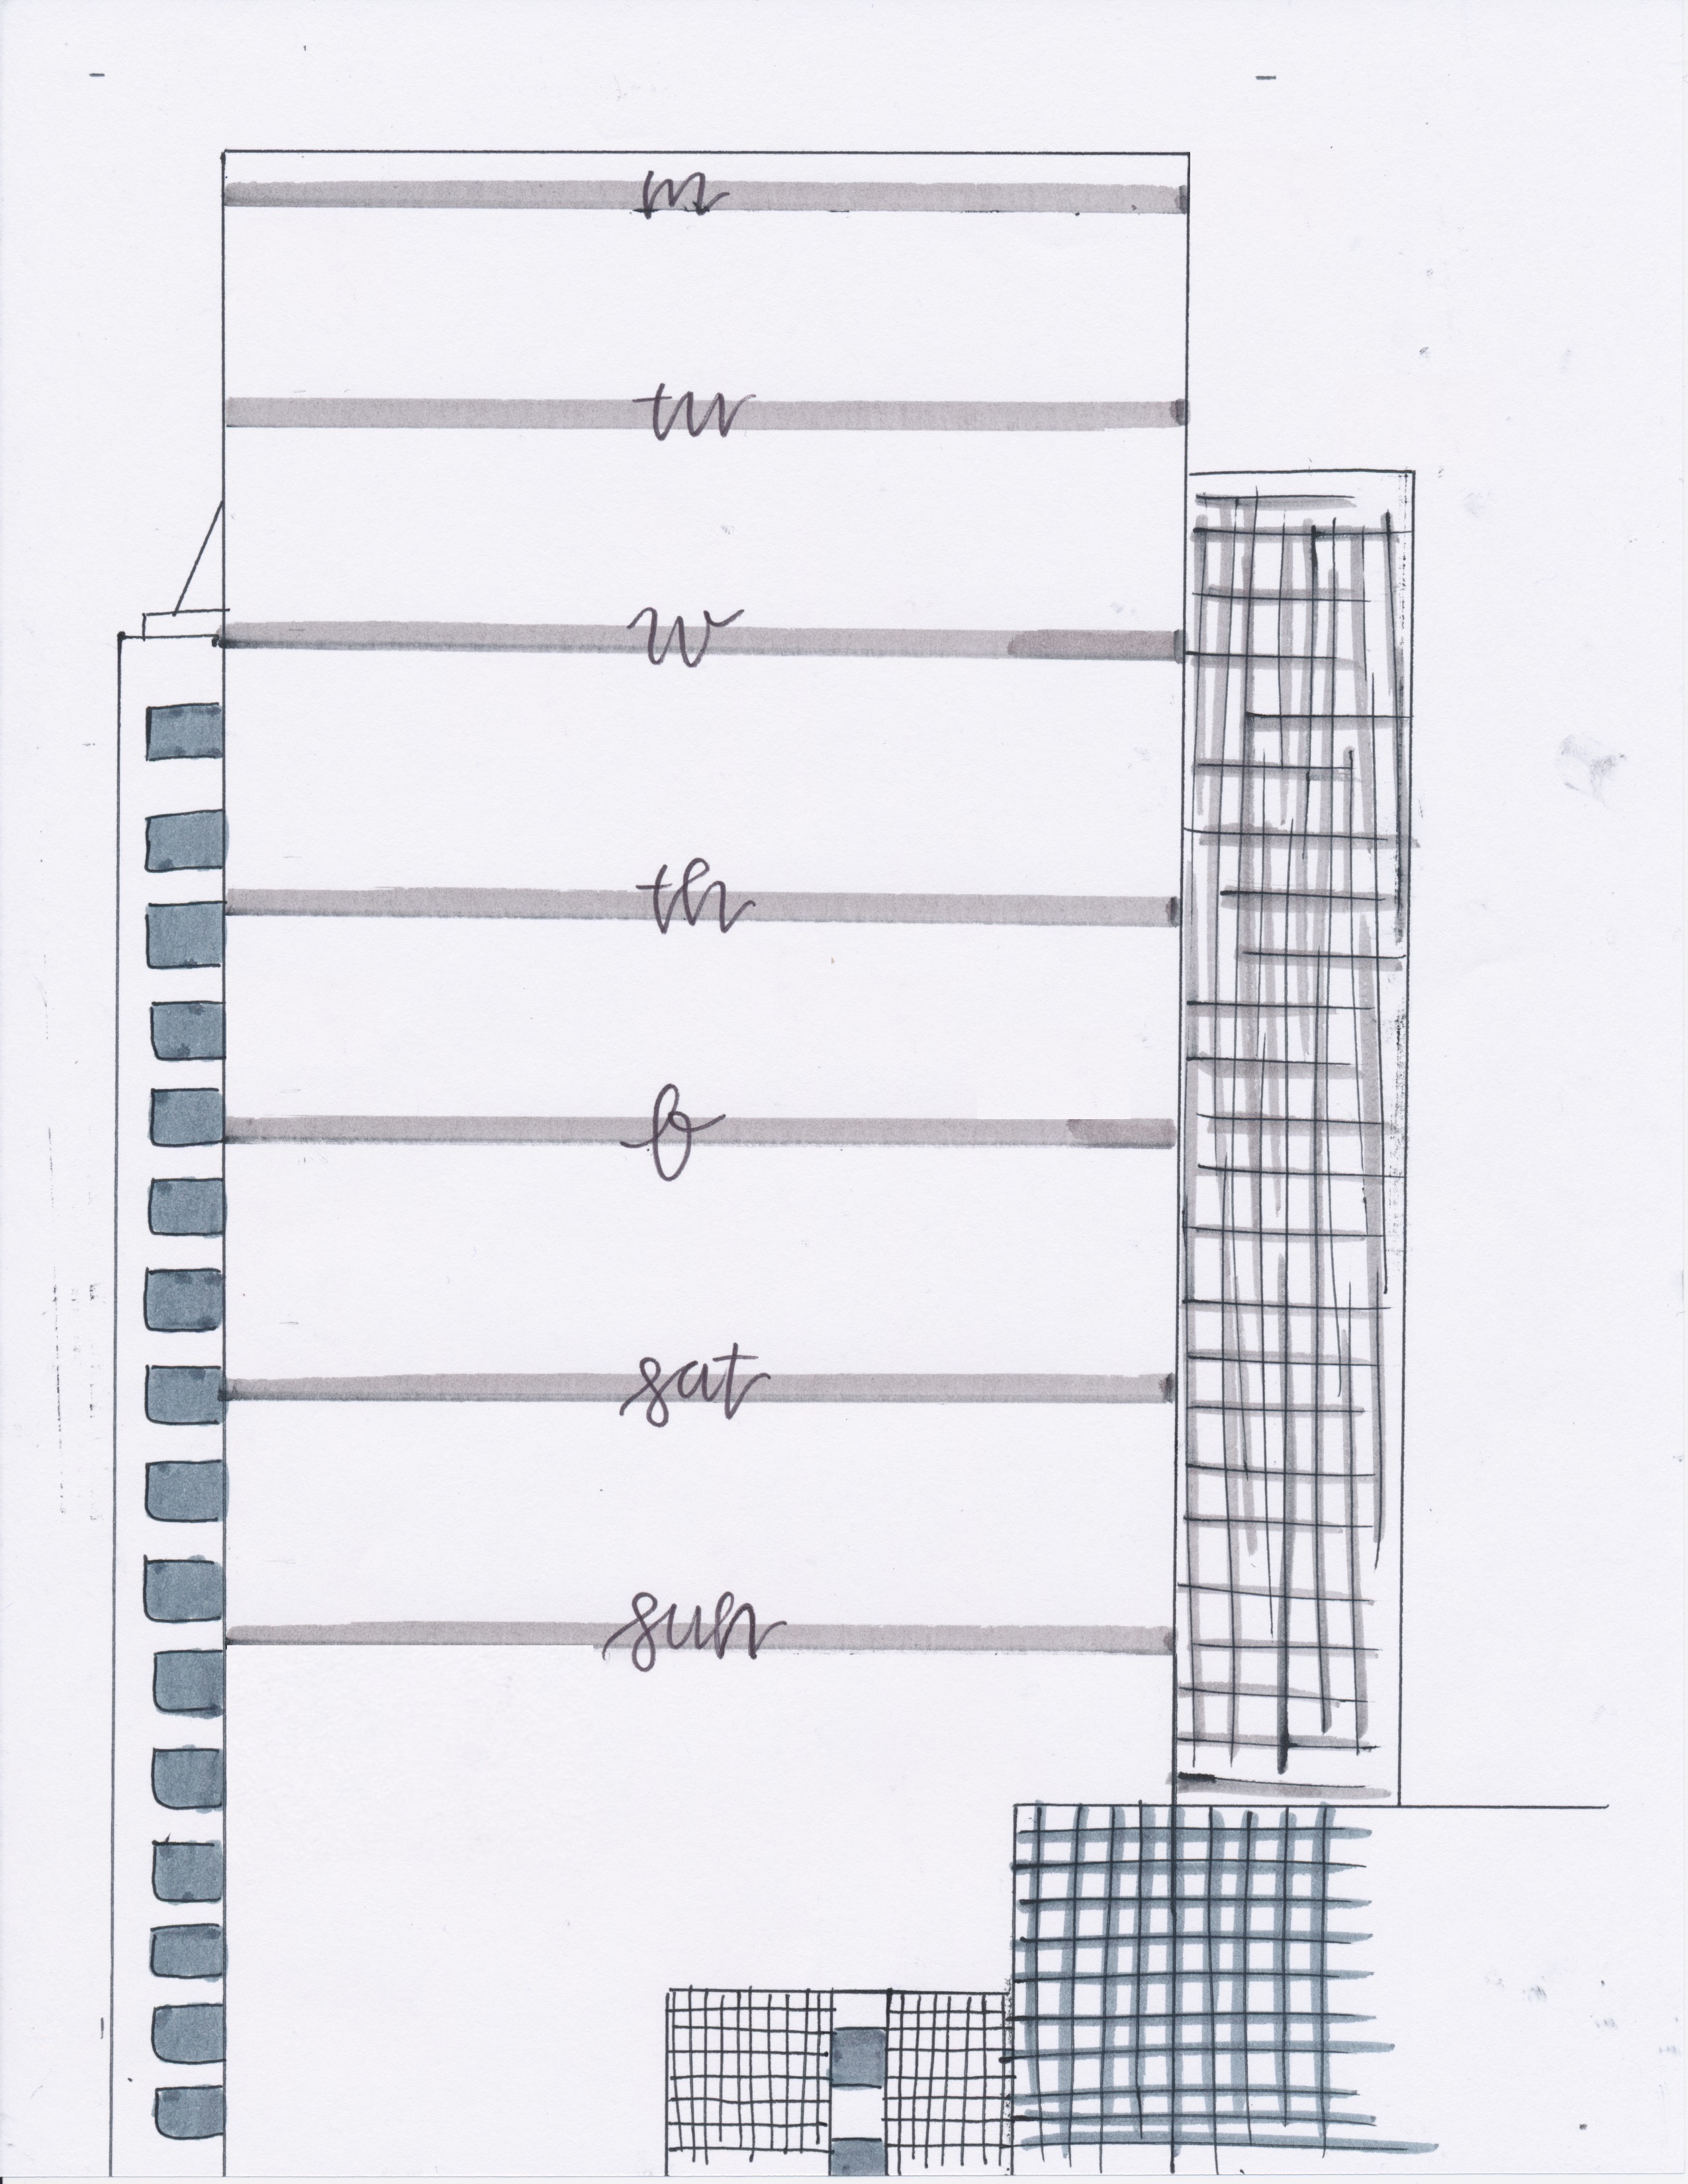 m
tu
w
th
f
sat
sun